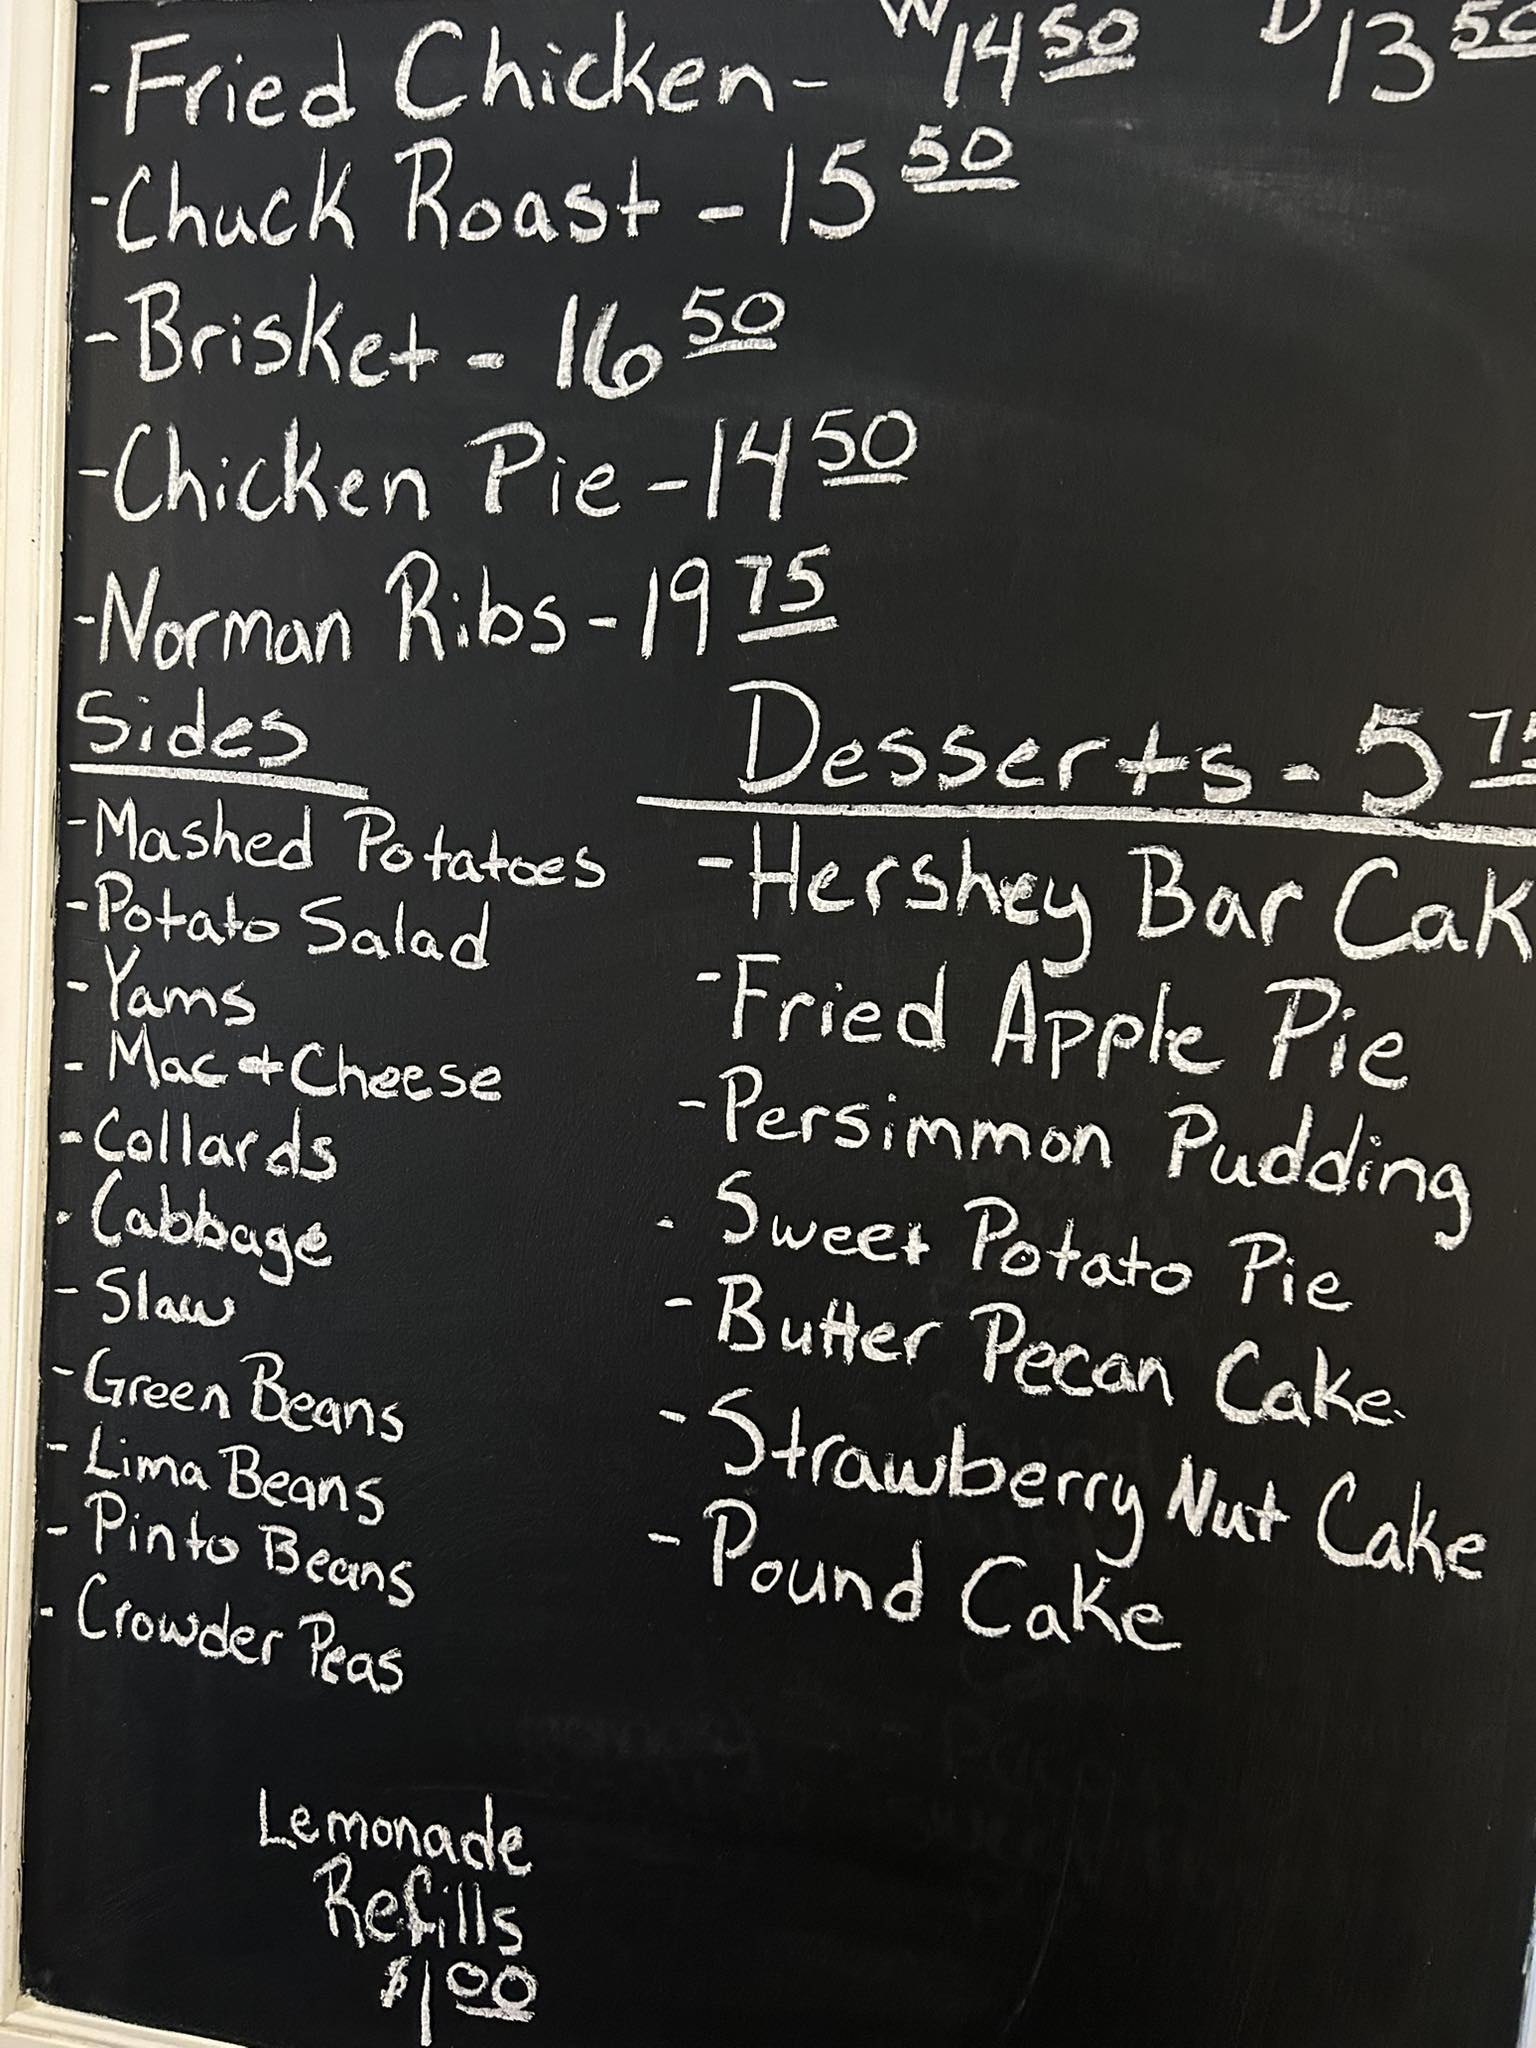 - Fried Chicken - W 14 50 D 13 50
- Chuck Roast - 15 50
- Brisket - 16 50
- Chicken Pie - 14 50
- Norman Ribs - 19 75
Sides
- Mashed Potatoes
- Potato Salad
- Yams
- Mac + Cheese
- Collards
- Cabbage
- Slaw
- Green Beans
- Lima Beans
- Pinto Beans
- Crowder Peas
Desserts - 5 75
- Hershey Bar Cak
- Fried Apple Pie
- Persimmon Pudding
- Sweet Potato Pie
- Butter Pecan Cake
- Strawberry Nut Cake
- Pound Cake
Lemonade
Refills
$1 00